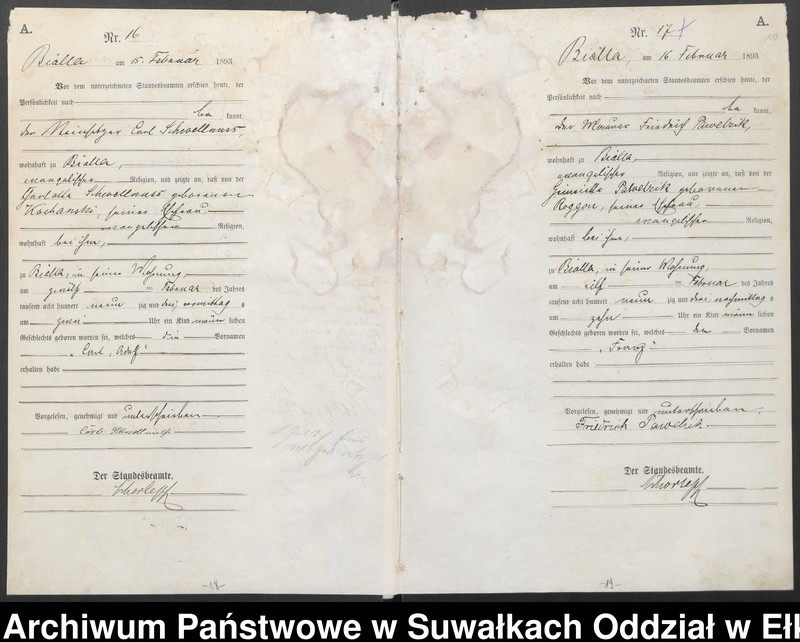 A.
Nr. 16
Bialla am 15. Februar 1893.
Vor dem unterzeichneten Standesbeamten erschien heute, der
Persönlichkeit nach
be kannt,
der Steinsetzer Carl
wohnhaft zu Bialla,
evangelischer Religion, und zeigte an, daß von der
Charlotte geborenen
Kochanski, seiner Ehefrau
evangelischer Religion,
wohnhaft bei ihm,
zu Bialla, in seiner Wohnung,
am zwölf ten Februar des Jahres
tausend acht hundert neun zig und drei vormittag s
um zwei Uhr ein Kind männ lichen
Geschlechts geboren worden sei, welches die Vornamen
„Carl, Adolf“
erhalten habe
Vorgelesen, genehmigt und unterschrieben
Carl
Der Standesbeamte.
-18-
A.
Nr. 17
Bialla, am 16. Februar 1893.
Vor dem unterzeichneten Standesbeamten erschien heute, der
Persönlichkeit nach
be kannt,
der Maurer Friedrich Pawelzik,
wohnhaft zu Bialla,
evangelischer Religion, und zeigte an, daß von der
Henriette Pawelzik geborenen
Roggon, seiner Ehefrau,
evangelischer Religion,
wohnhaft bei ihm,
zu Bialla, in seiner Wohnung,
am elf ten Februar des Jahres
tausend acht hundert neun zig und drei nachmittag s
um zehn Uhr ein Kind männ lichen
Geschlechts geboren worden sei, welches den Vornamen
„Franz“
erhalten habe
Vorgelesen, genehmigt und unterschrieben.
Friedrich Pawelzik.
Der Standesbeamte.
-19-
Archiwum Państwowe w Suwałkach Oddział w Eł